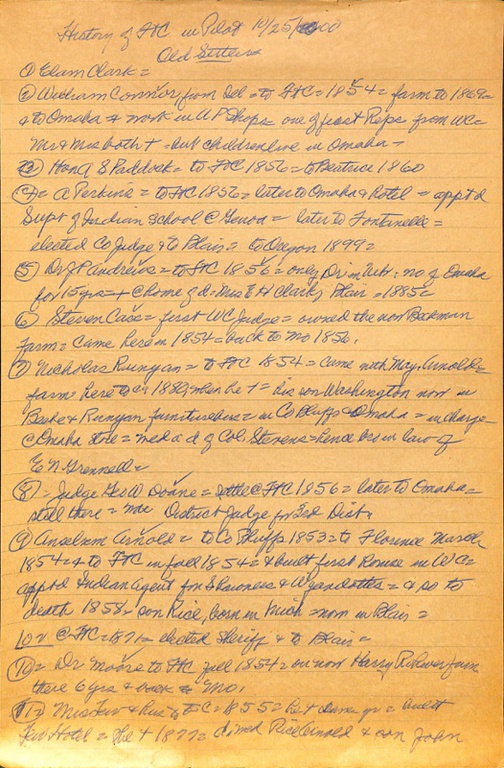 History of FtC in Pilot 10/25/00
Old Settlers
① Elam Clark =
② William Connor from Ill = to FtC = 1854 = farm to 1869 =
& to Omaha & work in UP Shops = one of first Reps from WC =
Mr & Mrs both + = but children live in Omaha =
③ Hon A S Paddock = to FtC 1856 = to Beatrice 1860
④ = A Perkins = to FtC 1856 = later to Omaha & Hotel = apptd
Supt of Indian School @ Genoa = later to Fontanelle =
elected Co Judge & to Blair = to Oregon 1899 =
⑤ Dr J P Andrews = to FtC 1856 = only Dr in Nebr : no of Omaha
for 15 yrs = + @ home of d = Mrs E H Clark, Blair = 1885 =
⑥ Steven Case = first WC Judge = owned the now Beekman
farm = came here in 1854 = back to Mo 1856.
⑦ Nicholas Runyan = to FtC 1854 = came with Maj. Arnold =
farm here to 1880, when he + = his son Washington now in
& Runyan furniture = in Co Bluffs & Omaha = in charge
@ Omaha store = med a d of Col. Stevens = hence bro in law of
E N Grennell =
⑧ = Judge Geo W Doane = @ FtC 1856 = later to Omaha =
still there = District Judge for 3rd Dist.
⑨ Anselum Arnold = to Co Bluffs 1853 = to Florence March
1854 = & to FtC in fall 1854 = & built first House in WC =
apptd Indian Agent for Shawnees & Wyandottes = & so to
death 1858 = son Rice, born in Mich = now in Blair =
@ FtC = 1871 = elected Sheriff & to Blair =
⑩ = Dr Moore to FtC fall 1854 = on now Harry Rohwer farm
there 6 yrs & back to Mo.
⑪ Mrs & Hus to FtC = 1855 = he + same yr = built
Hotel = She + 1877 = d med Rice Arnold & son John